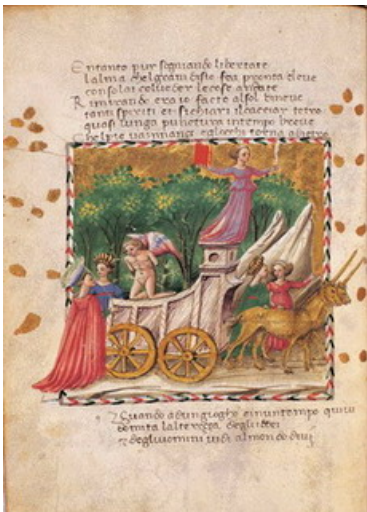 Entanto pur sognando libertate
lalma chelgram disio fea pronta eleve
consolai colveder le cose andate
Rimirando era io facto alsol dineve
tanti spiriti et sichiari icarcer tetro
quasi lunga pinctura intempo breve
chelpie va innanzi
Quando adungiogho et inuntempo quivi
domita lalterezza deglidei
et degliuomini vidi almondo divi